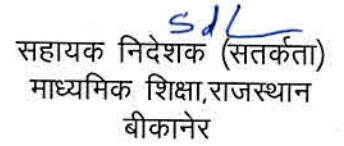 Sd/-
सहायक निदेशक (सतर्कता)
माध्यमिक शिक्षा,राजस्थान
बीकानेर